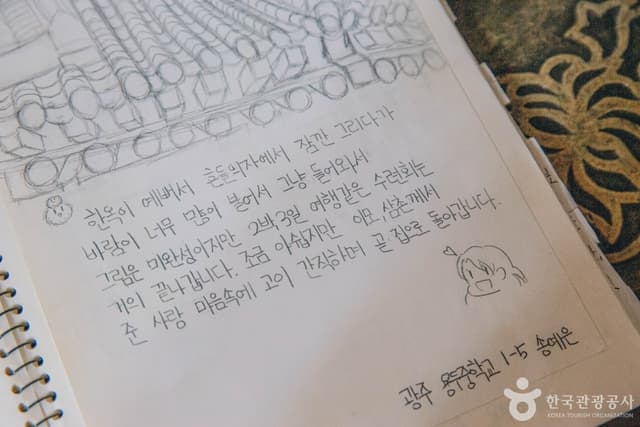 한옥이 예뻐서 흔들의자에서 잠깐 그리다가
바람이 너무 많이 불어서 그냥 들어와서
그림은 미완성이지만 2박3일 여행같은 수련회는
거의 끝나갑니다. 조금 아쉽지만 이모,삼촌께서
준 사랑 마음속에 고이 간직하며 곧 집으로 돌아갑니다.
광주 용두중학교 1-5 송예은
한국관광공사
KOREA TOURISM ORGANIZATION